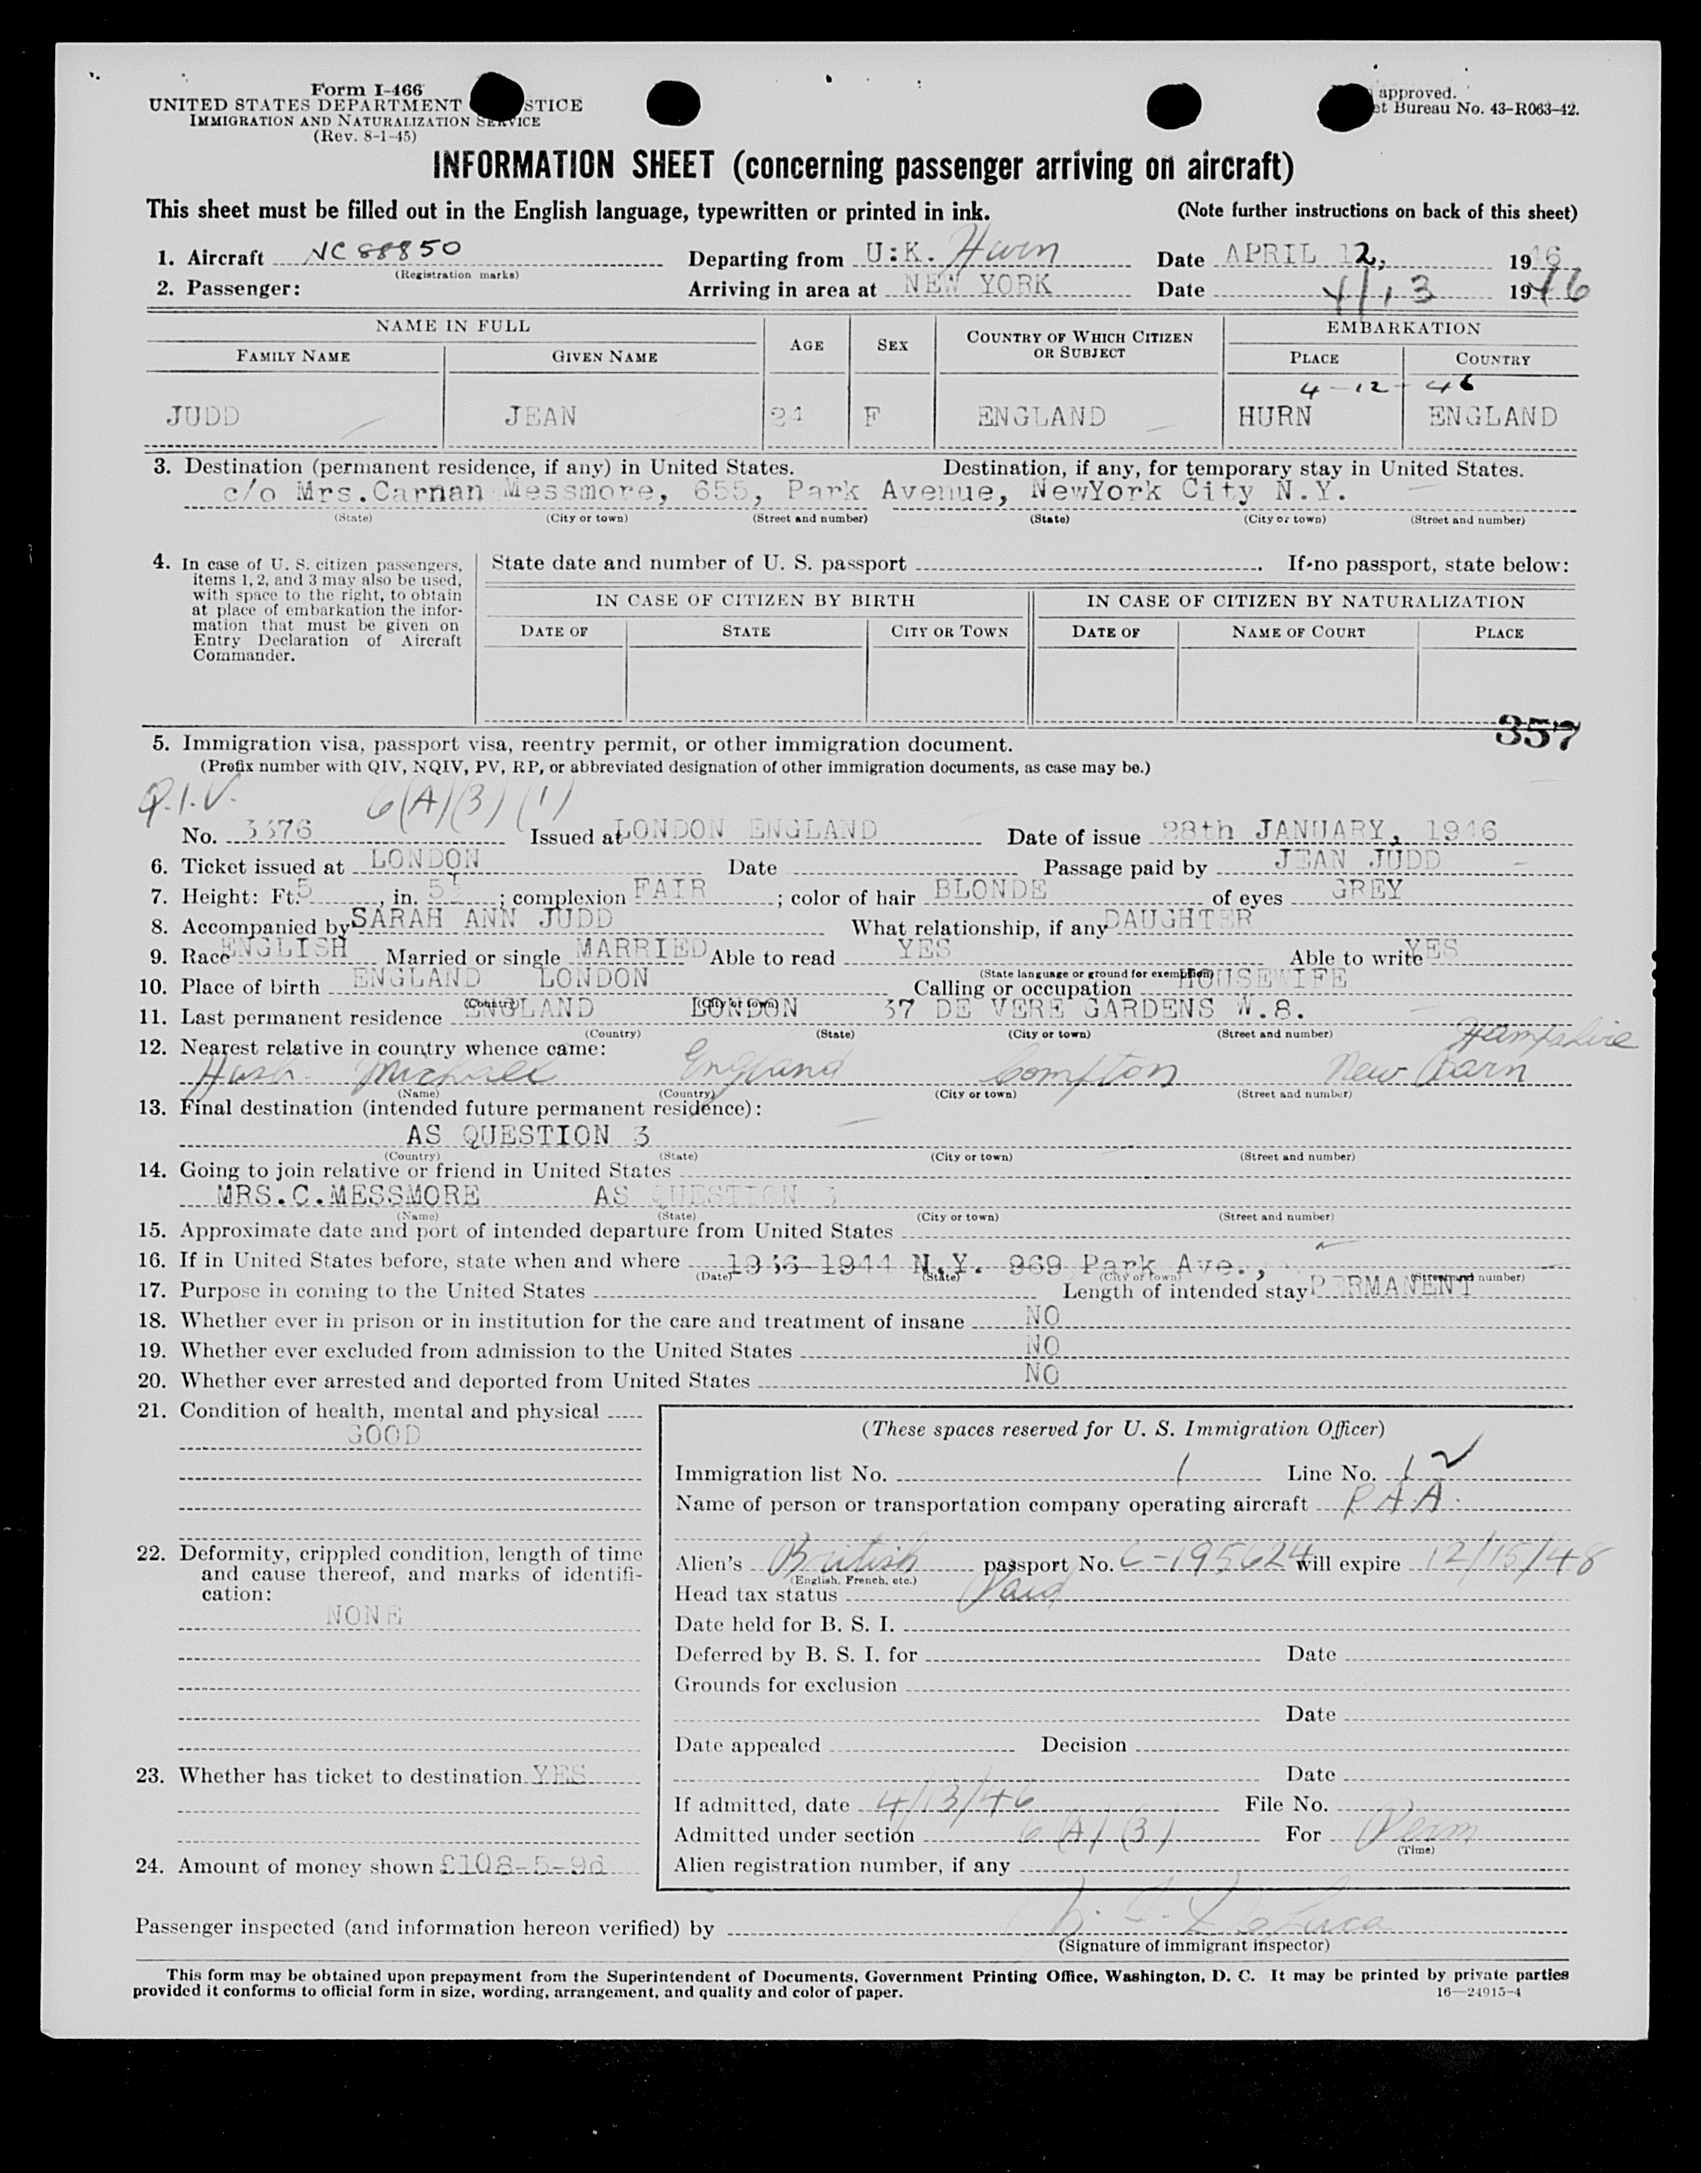 Form I-466
UNITED STATES DEPARTMENT STICE
IMMIGRATION AND NATURALIZATION SERVICE
(Rev. 8-1-45)
approved.
et Bureau No. 43-R063-42.
INFORMATION SHEET (concerning passenger arriving on aircraft)
This sheet must be filled out in the English language, typewritten or printed in ink. (Note further instructions on back of this sheet)
1. Aircraft NC 88850 Departing from U.K. Hurn Date APRIL 12, 1946
(Registration marks)
2. Passenger: Arriving in area at NEW YORK Date 4/13 1946
NAME IN FULL AGE SEX COUNTRY OF WHICH CITIZEN OR SUBJECT EMBARKATION
FAMILY NAME GIVEN NAME PLACE COUNTRY
4-12-46
JUDD JEAN 24 F ENGLAND HURN ENGLAND
3. Destination (permanent residence, if any) in United States. Destination, if any, for temporary stay in United States.
c/o Mrs.Carnan Messmore, 655, Park Avenue, NewYork City N.Y.
(State) (City or town) (Street and number) (State) (City or town) (Street and number)
4. In case of U. S. citizen passengers, items 1, 2, and 3 may also be used, with space to the right, to obtain at place of embarkation the information that must be given on Entry Declaration of Aircraft Commander.
State date and number of U. S. passport If no passport, state below:
IN CASE OF CITIZEN BY BIRTH IN CASE OF CITIZEN BY NATURALIZATION
DATE OF STATE CITY OR TOWN DATE OF NAME OF COURT PLACE
357
5. Immigration visa, passport visa, reentry permit, or other immigration document.
(Prefix number with QIV, NQIV, PV, RP, or abbreviated designation of other immigration documents, as case may be.)
Q.I.V. 6(A)(3)(1)
No. 3376 Issued at LONDON ENGLAND Date of issue 28th JANUARY, 1946
6. Ticket issued at LONDON Date Passage paid by JEAN JUDD
7. Height: Ft. 5, in. 5½; complexion FAIR; color of hair BLONDE of eyes GREY
8. Accompanied by SARAH ANN JUDD What relationship, if any DAUGHTER
9. Race ENGLISH Married or single MARRIED Able to read YES Able to write YES
(State language or ground for exemption)
10. Place of birth ENGLAND LONDON Calling or occupation HOUSEWIFE
(Country) (City or town)
11. Last permanent residence ENGLAND LONDON 37 DE VERE GARDENS W.8.
(Country) (State) (City or town) (Street and number)
12. Nearest relative in country whence came: Hampshire
Husb. Michael England Compton New Barn
(Name) (Country) (City or town) (Street and number)
13. Final destination (intended future permanent residence):
AS QUESTION 3
(Country) (State) (City or town) (Street and number)
14. Going to join relative or friend in United States
MRS.C.MESSMORE AS QUESTION 3
(Name) (State) (City or town) (Street and number)
15. Approximate date and port of intended departure from United States
16. If in United States before, state when and where 1936-1944 N.Y. 969 Park Ave.,
(Date) (State) (City or town) (Street and number)
17. Purpose in coming to the United States Length of intended stay PERMANENT
18. Whether ever in prison or in institution for the care and treatment of insane NO
19. Whether ever excluded from admission to the United States NO
20. Whether ever arrested and deported from United States NO
21. Condition of health, mental and physical
GOOD
22. Deformity, crippled condition, length of time and cause thereof, and marks of identification:
NONE
23. Whether has ticket to destination YES
24. Amount of money shown £108-5-9d
(These spaces reserved for U. S. Immigration Officer)
Immigration list No. 1 Line No. 12
Name of person or transportation company operating aircraft P.A.A.
Alien's British passport No. C-195624 Will expire 12/15/48
(English, French, etc.)
Head tax status Paid
Date held for B. S. I.
Deferred by B. S. I. for Date
Grounds for exclusion
Date
Date appealed Decision
Date
If admitted, date 4/13/46 File No.
Admitted under section 6(A)(3) For Perm
(Time)
Alien registration number, if any
Passenger inspected (and information hereon verified) by
(Signature of immigrant inspector)
This form may be obtained upon prepayment from the Superintendent of Documents, Government Printing Office, Washington, D. C. It may be printed by private parties
provided it conforms to official form in size, wording, arrangement, and quality and color of paper. 16—24915-4